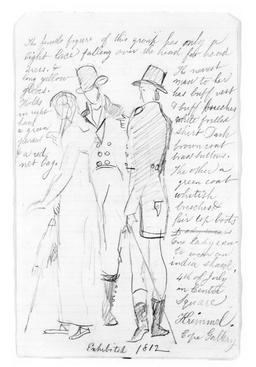 The female figure of this group has only a
tight lace falling over the head for head
dress. &
long yellow
gloves.
Holds
in right
hand
a green
parasol
& a red
net bag.
The nearest
man to her
has buff vest
& buff breeches
white frilled
shirt Dark
brown coat
brass buttons.
The other a
green coat
whitish
breeches
fair top boots
One lady seen
to wear an
india shawl.
4th of July
in Center
Square
Krimmel.
Exhibited 1812